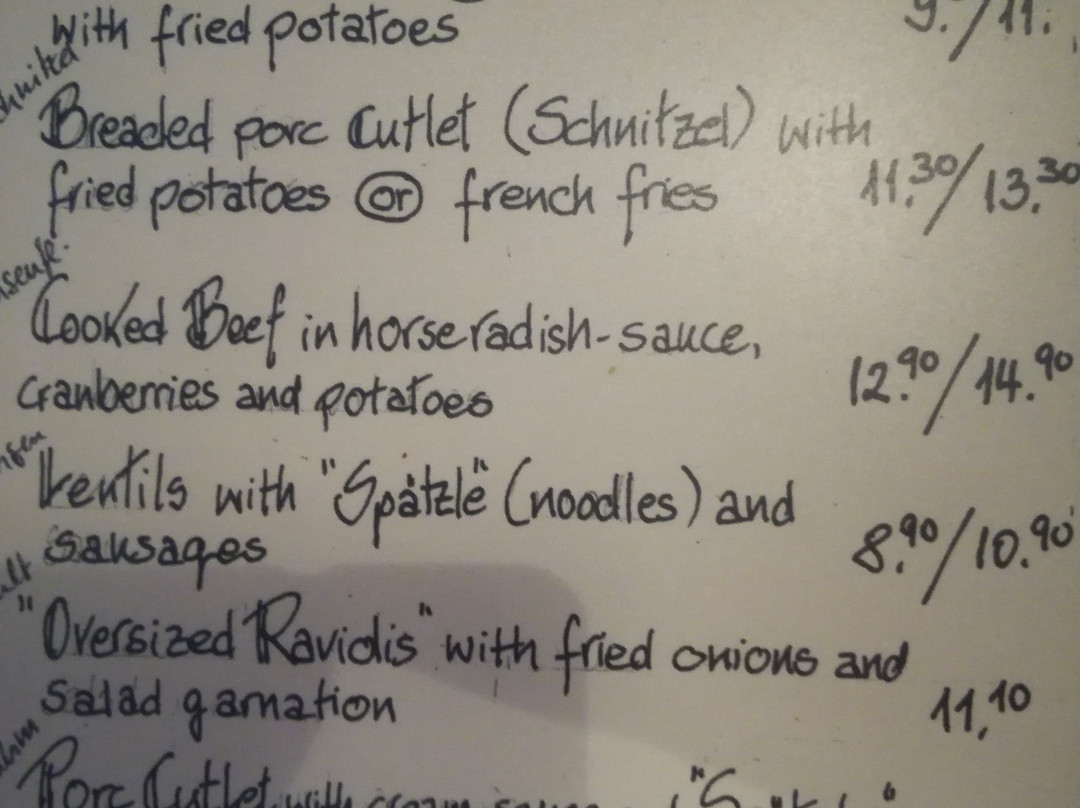 with fried potatoes
Breaded porc Cutlet (Schnitzel) with
fried potatoes or french fries 11.30/13.30
Cooked Beef in horseradish-sauce,
cranberries and potatoes 12.90/14.90
Lentils with "Spätzle" (noodles) and
sausages 8.90/10.90
"Oversized Raviolis" with fried onions and
salad garnation 11,10
Porc Cutlet with cream